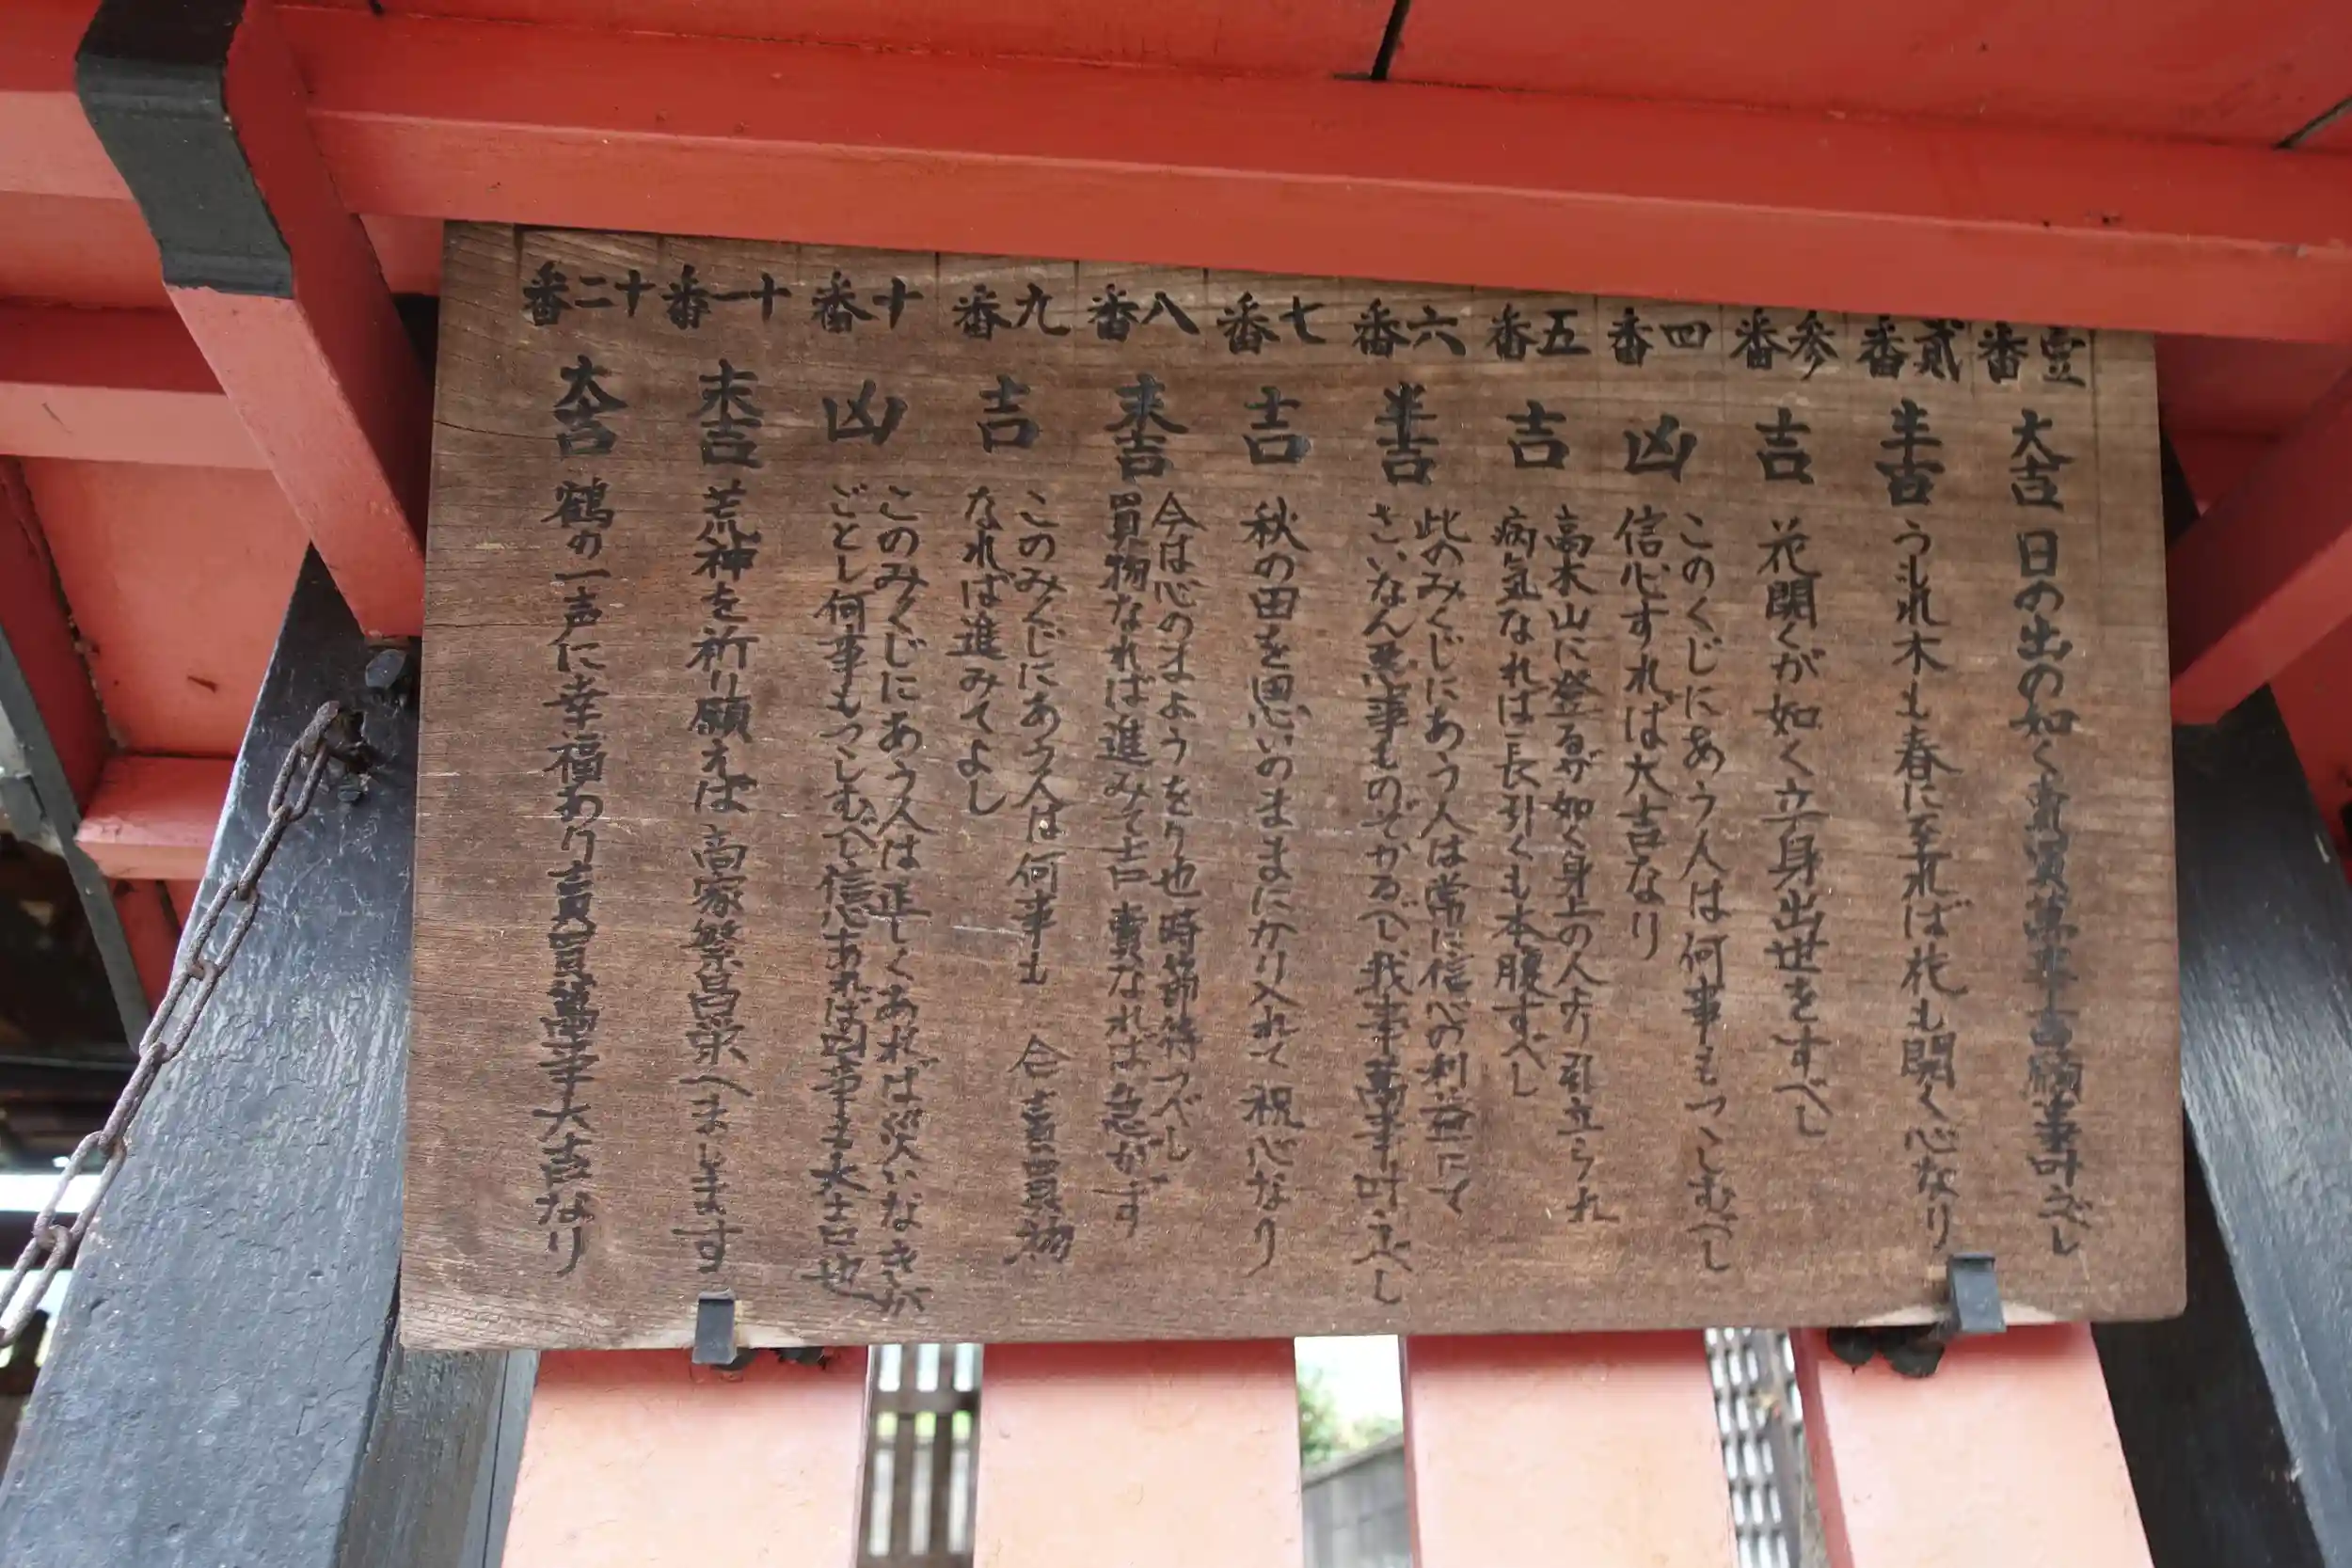 壹番 大吉 日の出の如く売買萬事吉願事叶うべし
貳番 半吉 うもれ木も春に至れば花も開く心なり
参番 吉 花開くが如く立身出世をすべし
四番 凶 このくじにあう人は何事もつゝしむべし
信心すれば大吉なり
五番 吉 高木山に登るが如く身上の人より引立られ
病気なれば長引くも本腹すべし
六番 半吉 此のみくじにあう人は常に信心の利益にて
さいなん悪事ものぞかるべし我事萬事叶うべし
七番 吉 秋の田を思いのままにかり入れて祝心なり
八番 末吉 今は心のまようをり也時節待つべし
買物なれば進みて吉 賣なれば急がず
九番 吉 このみくじにあう人は何事も 合 賣買物
なれば進みてよし
十番 凶 このみくじにあう人は正しくあれば災いなきが
ごとし何事もつゝしむべし信心あれば凶事も大吉也
十一番 末吉 荒神を祈り願えば商家繁昌栄へまします
十二番 大吉 鶴の一声に幸福あり賣買萬事大吉なり